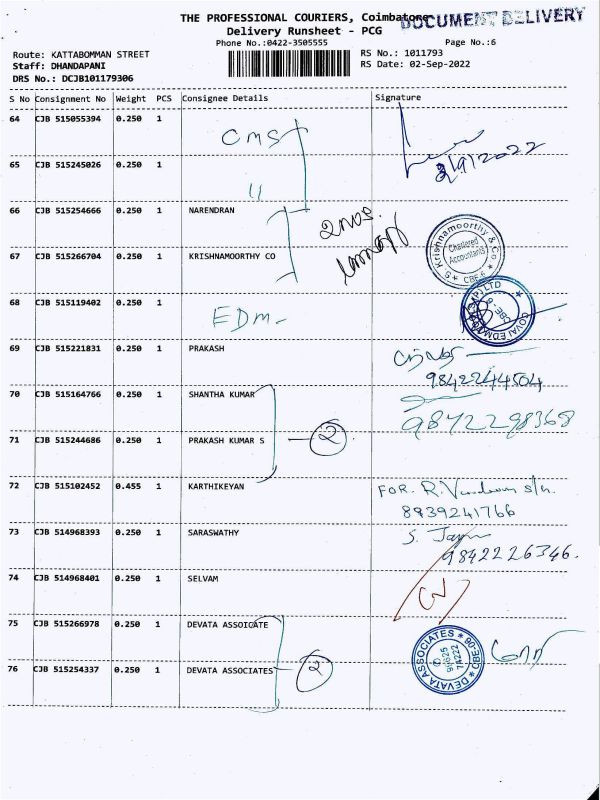 THE PROFESSIONAL COURIERS, Coimbatore
DOCUMENT DELIVERY
Delivery Runsheet - PCG
Phone No.:0422-3505555
Page No.:6
Route: KATTABOMMAN STREET
RS No.: 1011793
Staff: DHANDAPANI
RS Date: 02-Sep-2022
DRS No.: DCJB101179306
S No Consignment No Weight PCS Consignee Details Signature
64 CJB 515055394 0.250 1
CMS
2/9/2022
65 CJB 515245026 0.250 1
11
66 CJB 515254666 0.250 1 NARENDRAN
67 CJB 515266704 0.250 1 KRISHNAMOORTHY CO
G. Krishnamoorthy & Co
Chartered Accountants
CBE-6
68 CJB 515119402 0.250 1
EDM-
69 CJB 515221831 0.250 1 PRAKASH
9842244504
70 CJB 515164766 0.250 1 SHANTHA KUMAR
9842298368
71 CJB 515244686 0.250 1 PRAKASH KUMAR S
2
72 CJB 515102452 0.455 1 KARTHIKEYAN
FOR. R.
8939241766
73 CJB 514968393 0.250 1 SARASWATHY
9842226346.
74 CJB 514968401 0.250 1 SELVAM
75 CJB 515266978 0.250 1 DEVATA ASSOICATE
DEVATA ASSOCIATES
76 CJB 515254337 0.250 1 DEVATA ASSOCIATES
2